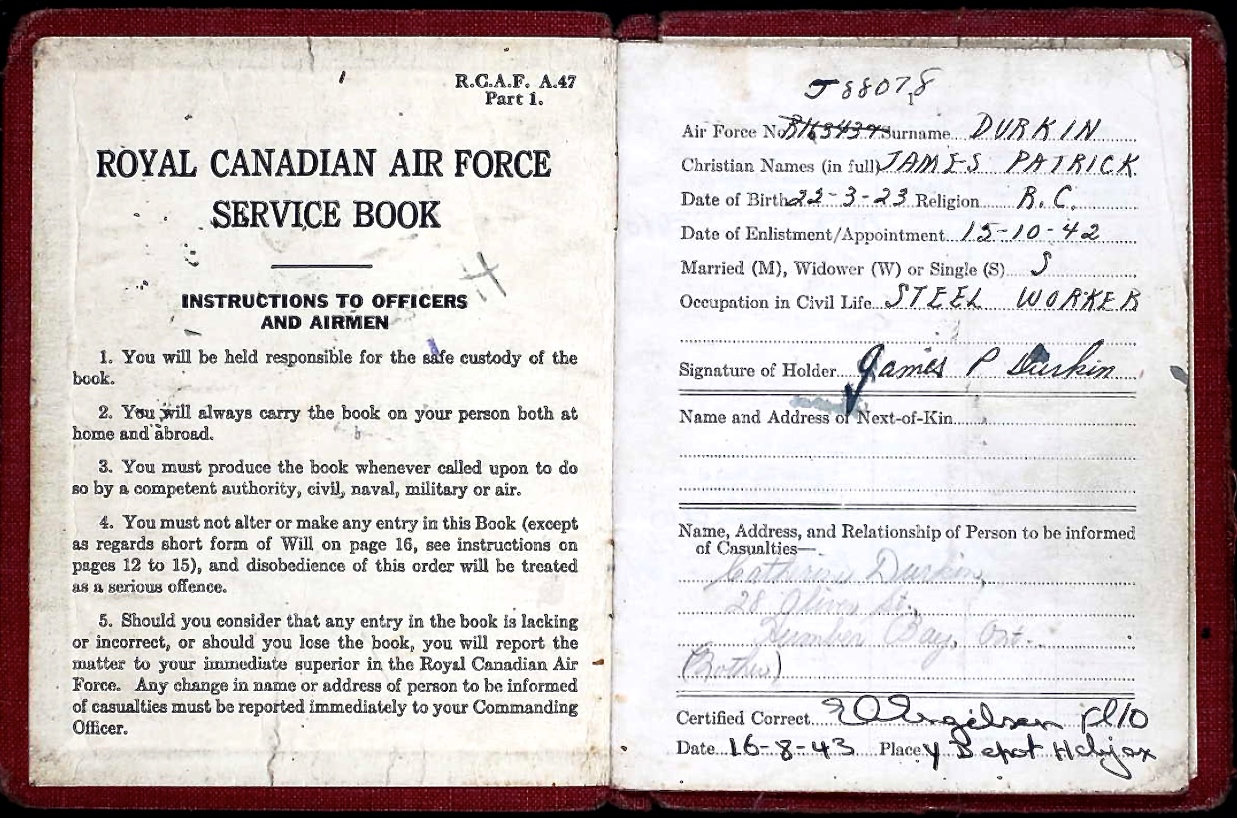 R.C.A.F. A.47
Part 1.
ROYAL CANADIAN AIR FORCE
SERVICE BOOK
INSTRUCTIONS TO OFFICERS
AND AIRMEN
1. You will be held responsible for the safe custody of the
book.
2. You will always carry the book on your person both at
home and abroad.
3. You must produce the book whenever called upon to do
so by a competent authority, civil, naval, military or air.
4. You must not alter or make any entry in this Book (except
as regards short form of Will on page 16, see instructions on
pages 12 to 15), and disobedience of this order will be treated
as a serious offence.
5. Should you consider that any entry in the book is lacking
or incorrect, or should you lose the book, you will report the
matter to your immediate superior in the Royal Canadian Air
Force. Any change in name or address of person to be informed
of casualties must be reported immediately to your Commanding
Officer.
J88078
Air Force No. Surname DURKIN
Christian Names (in full) JAMES PATRICK
Date of Birth 22-3-23 Religion R.C.
Date of Enlistment/Appointment 15-10-42
Married (M), Widower (W) or Single (S) S
Occupation in Civil Life STEEL WORKER
Signature of Holder James P Durkin
Name and Address of Next-of-Kin
Name, Address, and Relationship of Person to be informed
of Casualties—
Catherine Durkin,
28 St.,
Humber Bay, Ont.
(Mother)
Certified Correct F/O
Date 16-8-43 Place Y Depot Halifax